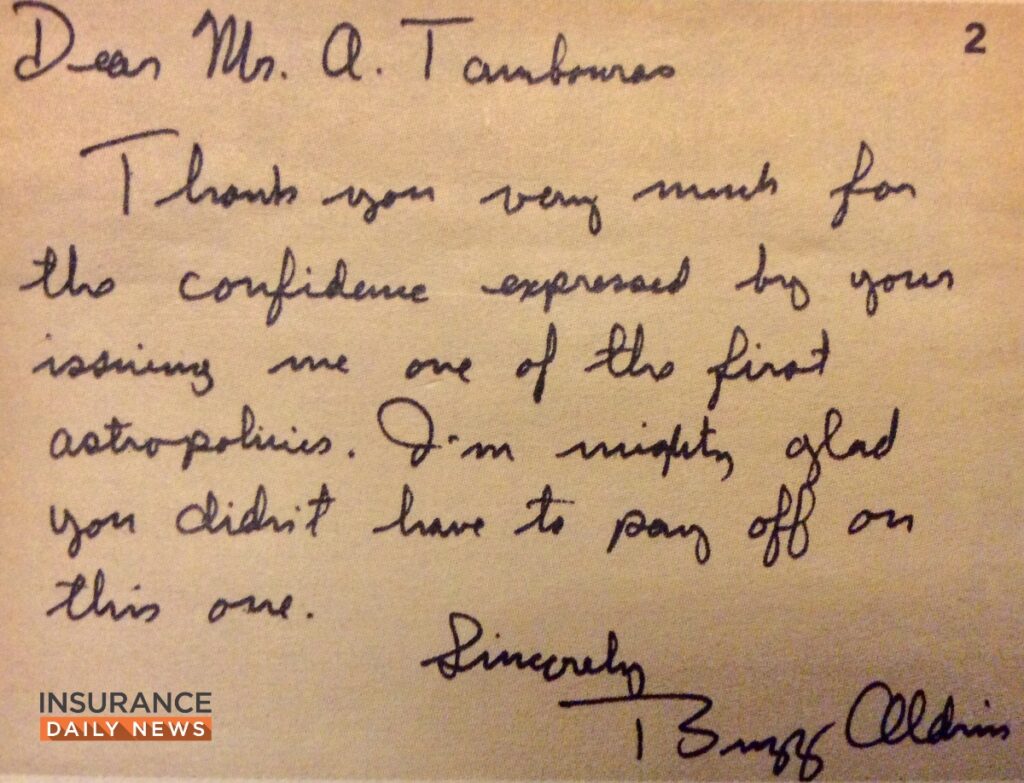 Dear Mr. A. Tambouras
2
Thank you very much for
the confidence expressed by your
issuing me one of the first
astropolicies. I'm mighty glad
you didn't have to pay off on
this one.
Sincerely
Buzz Aldrin
INSURANCE
DAILY NEWS